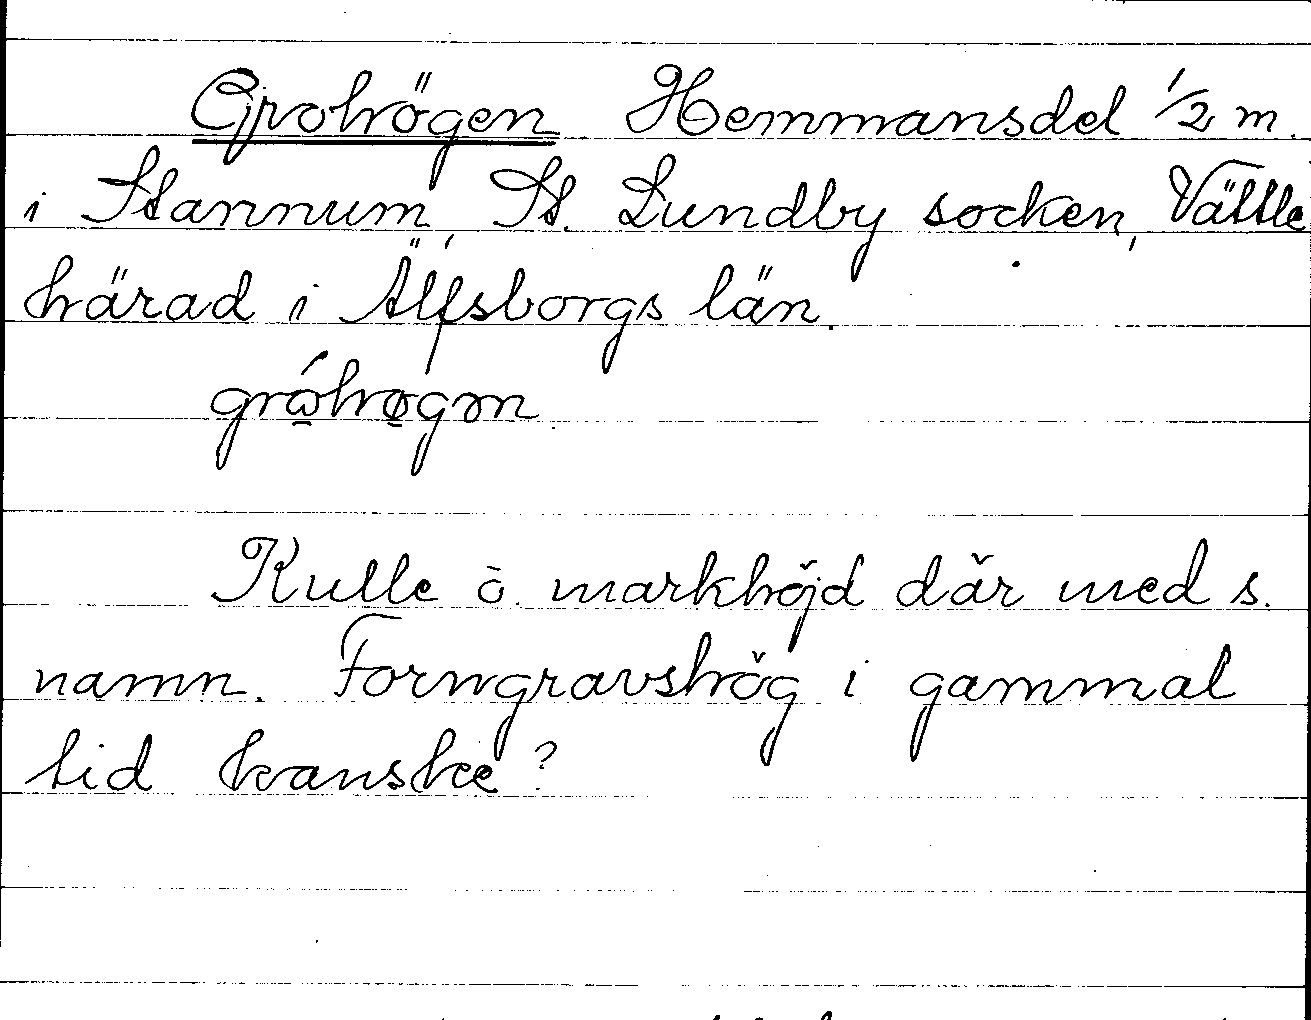 Grohögen Hemmansdel 1/2 m.
i Stannum, St. Lundby socken, Vättle
härad i Älfsborgs län.
Kulle o. markhöjd där med s.
namn. Forngravshög i gammal
tid kanske?